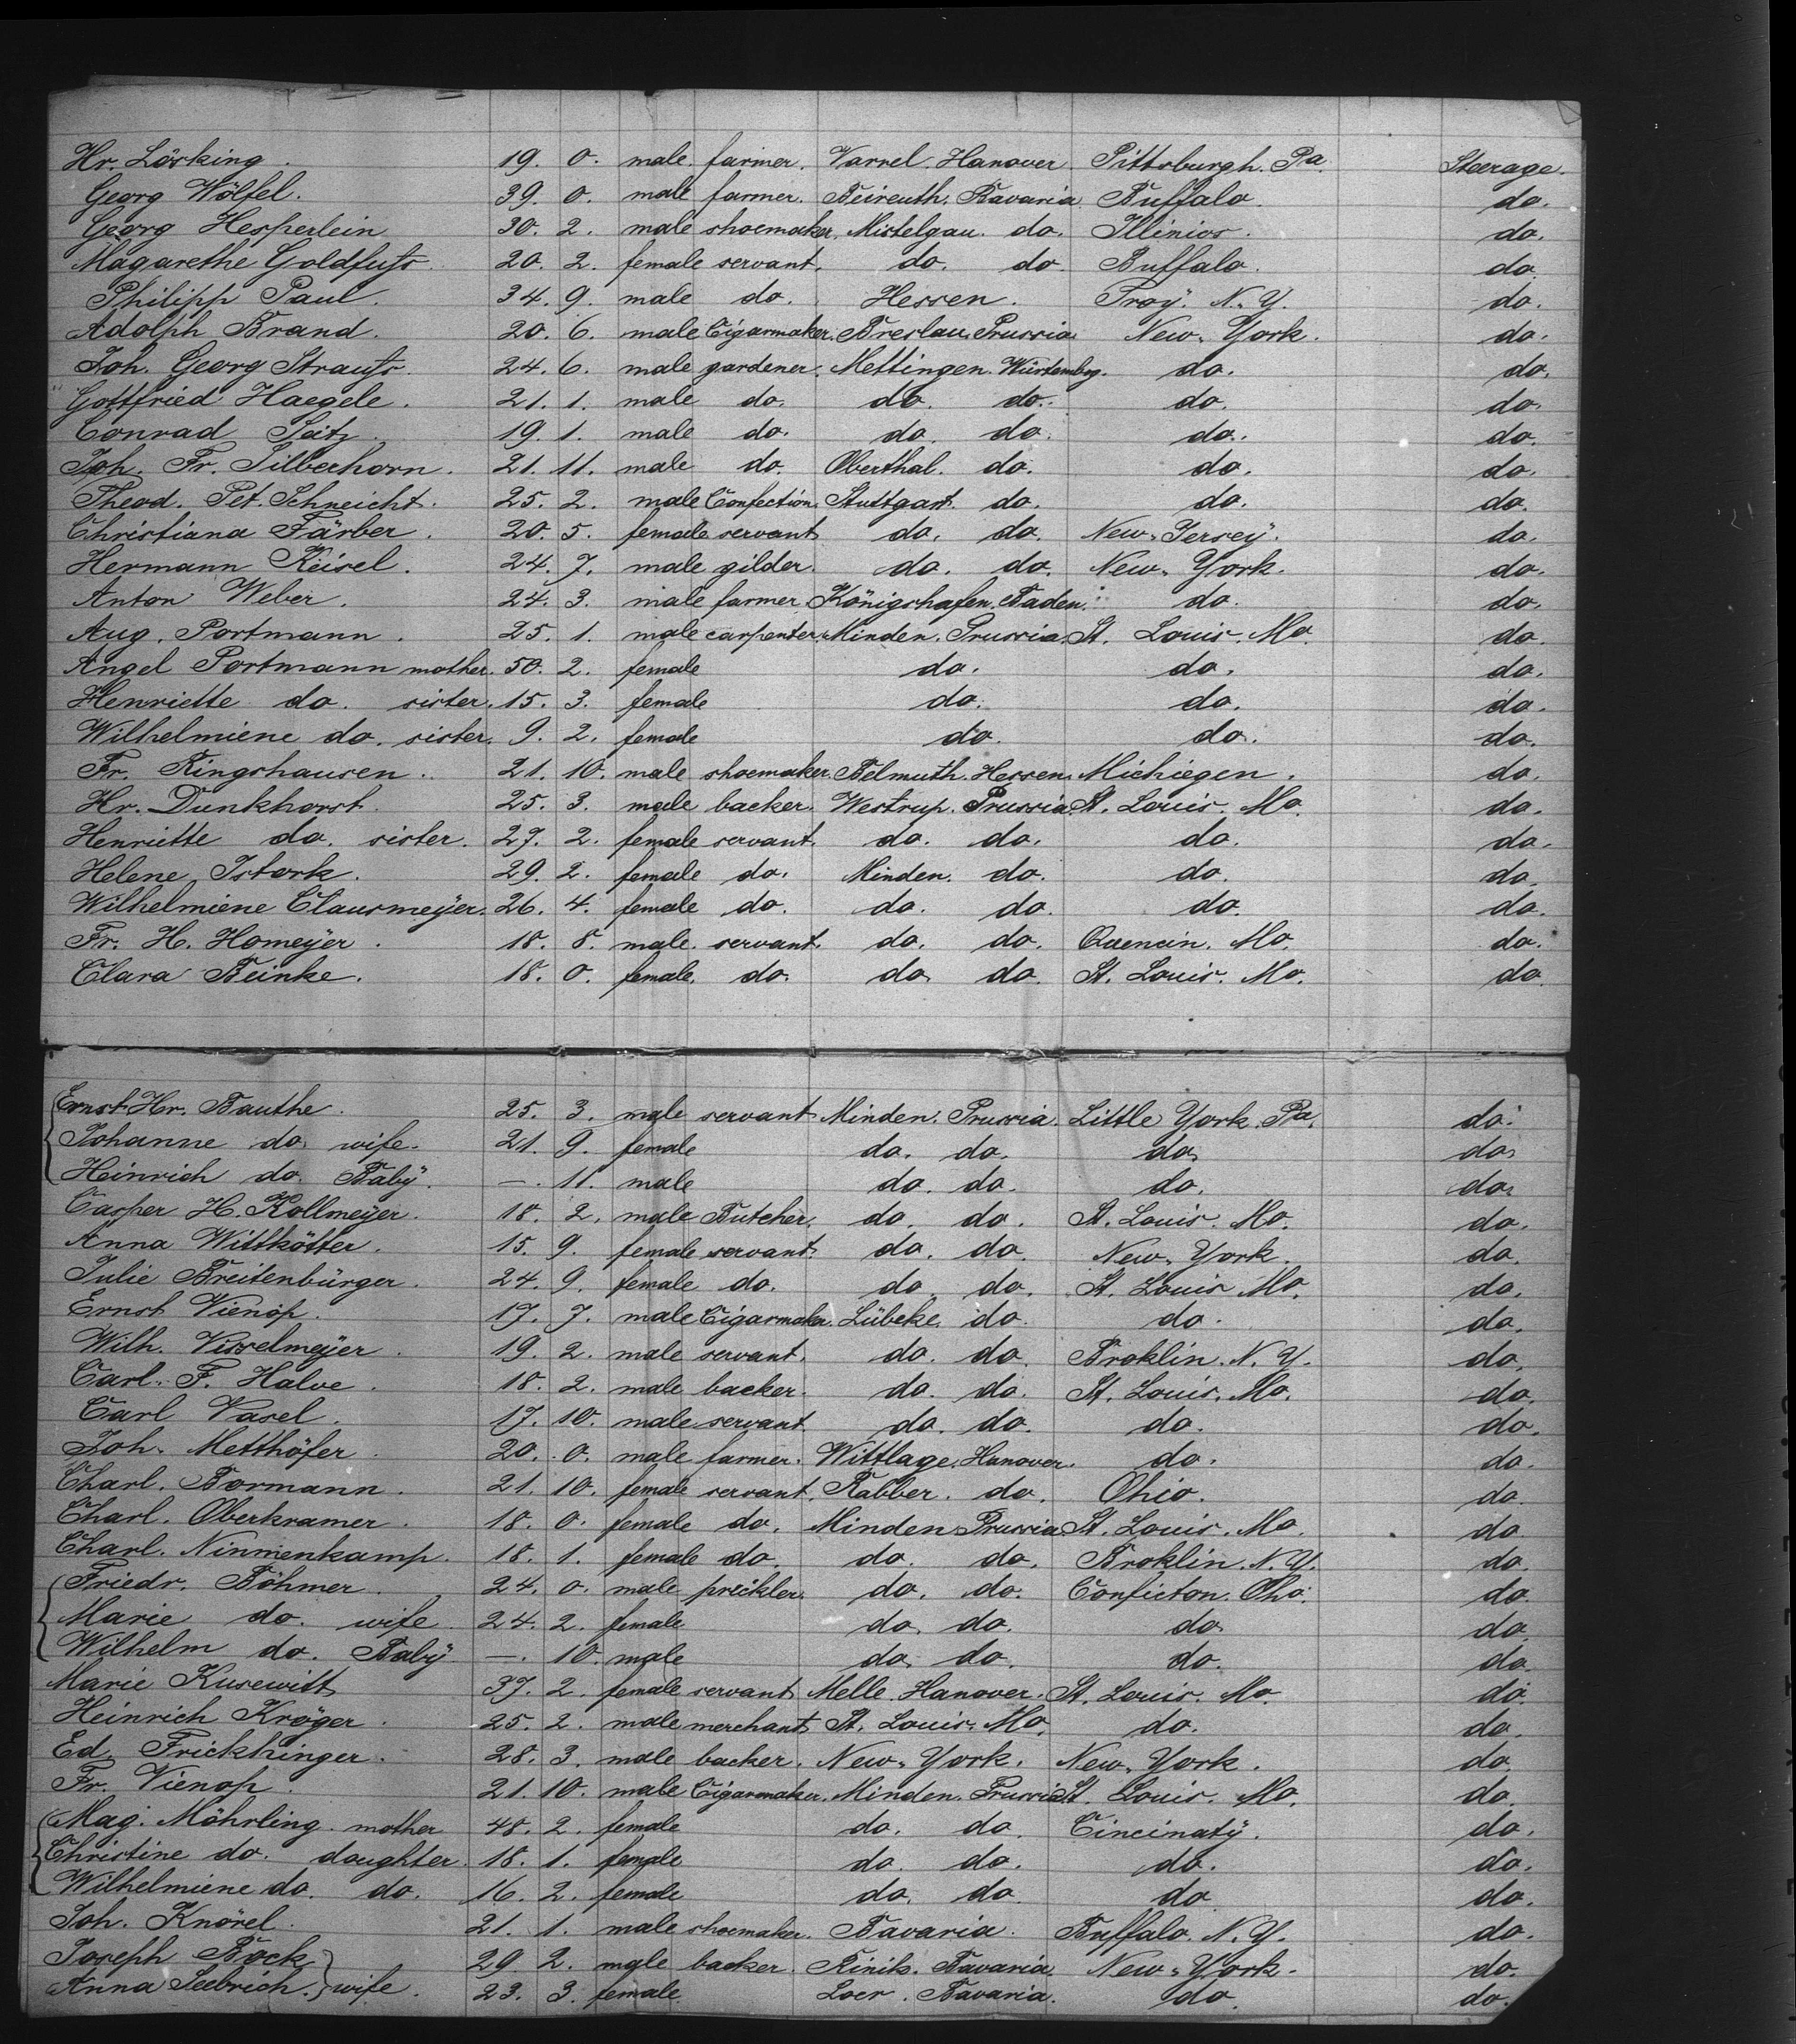 Hr. Lörking. 19. 0. male. farmer. Varrel. Hanover. Pittsburgh. Pa. Steerage.
Georg Wölfel. 39. 0. male farmer. Beireuth. Bavaria. Buffalo. do.
Georg Hesperlein 30. 2. male shoemaker. Mistelgau. do. Illinios. do.
Magarethe Goldfuß. 20. 2. female servant. do. do. Buffalo. do.
Philipp Paul. 34. 9. male do. Hessen. Troy. N. Y. do.
Adolph Brand. 20. 6. male Cigarmaker. Breslau. Prussia New. York. do.
Joh. Georg Strauß. 24. 6. male gardener. Mettingen. Würtembg. do. do.
Gottfried Haegele. 21. 1. male do. do. do. do. do.
Conrad Seitz. 19. 1. male do. do. do. do. do.
Joh. Fr. Silberhorn. 21. 11. male do. Oberthal. do. do. do.
Theod. Pet. Schneicht. 25. 2. male Confection. Stuttgart. do. do. do.
Christiana Färber. 20. 5. female servant do. do. New. Jersey. do.
Hermann Keisel. 24. 7. male gilder. do. do. New. York. do.
Anton Weber. 24. 3. male farmer. Königshafen. Baden. do. do.
Aug. Portmann. 25. 1. male carpenter. Minden. Prussia. St. Louis. Mo. do.
Angel Portmann mother. 50. 2. female do. do. do.
Henriette do. sister. 15. 3. female do. do. do.
Wilhelmiene do. sister. 9. 2. female do. do. do.
Fr. Ringshausen. 21. 10. male shoemaker. Belmuth. Hessen. Michiegen. do.
Hr. Dunkhorst. 25. 3. male backer. Westrup. Prussia. St. Louis. Mo. do.
Henriette do. sister. 27. 2. female servant. do. do. do. do.
Helene Istork. 29. 2. female do. Minden. do. do. do.
Wilhelmiene Clausmeÿer. 26. 4. female do. do. do. do. do.
Fr. H. Homeÿer. 18. 8. male. servant. do. do. Quencin. Mo. do.
Clara Beinke. 18. 0. female. do. do. do. St. Louis. Mo. do.
Ernst Hr. Bauthe. 25. 3. male servant Minden. Prussia. Little York. Pa. do.
Johanne do. wife. 21. 9. female do. do. do. do.
Heinrich do. Babÿ. —. 11. male do. do. do. do.
Casper H. Kollmeÿer. 18. 2. male Butcher. do. do. St. Louis. Mo. do.
Anna Wittkötter. 15. 9. female servant. do. do. New. York. do.
Julie Breitenbürger. 24. 9. female do. do. do. St. Louis Mo. do.
Ernst Vienop. 17. 7. male Cigarmaker. Lübeke. do. do. do.
Wilh. Visselmeÿer. 19. 2. male servant. do. do. Broklin. N. Y. do.
Carl. F. Halve. 18. 2. male backer. do. do. St. Louis. Mo. do.
Carl Vasel. 17. 10. male servant. do. do. do. do.
Joh. Metthöfer. 20. 0. male farmer. Wittlage. Hanover. do. do.
Charl. Bormann. 21. 10. female servant. Rabber. do. Ohio. do.
Charl. Oberkramer. 18. 0. female do. Minden Prussia St. Louis. Mo. do.
Charl. Ninmenkamp. 18. 1. female do. do. do. Broklin. N. Y. do.
Friedr. Böhmer. 24. 0. male preikler. do. do. Conficton. Oho. do.
Marie do. wife. 24. 2. female do. do. do. do.
Wilhelm do. Babÿ —. 10. male do. do. do. do.
Marie Kusewitt 37. 2. female servant Melle. Hanover. St. Louis. Mo. do.
Heinrich Kröger. 25. 2. male merchant St. Louis. Mo. do. do.
Ed. Frickhinger. 28. 3. male backer. New. York. New. York. do.
Fr. Vienop. 21. 10. male Cigarmaker. Minden. Prussia St. Louis. Mo. do.
Mag. Möhrling. mother 48. 2. female do. do. Cincinatÿ. do.
Christine do. daughter. 18. 1. female do. do. do. do.
Wilhelmiene do. do. 16. 2. female do. do. do. do.
Joh. Knörel. 21. 1. male shoemaker. Bavaria. Buffalo. N. Y. do.
Joseph Bock 29. 2. male backer. Rinik. Bavaria. New. York. do.
Anna Seebrich. wife. 23. 3. female. Loer. Bavaria. do. do.